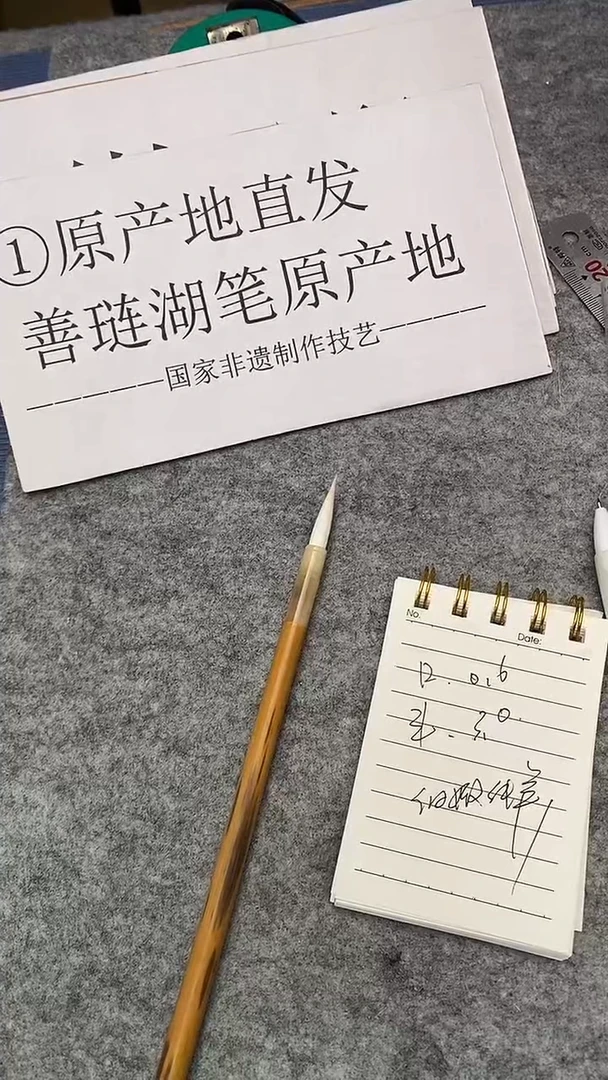 ①原产地直发
善琏湖笔原产地
—————国家非遗制作技艺————
20
cm
No.
Date:
口. 0.6